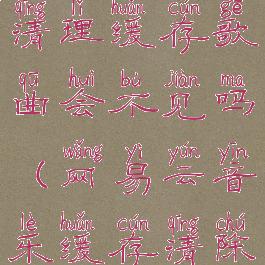 qīng lǐ huǎn cún gē
清理缓存歌
qǔ huì bú jiàn ma
曲会不见吗
wǎng yì yún yīn
（网易云音
lè huǎn cún qīng chú
乐缓存清除